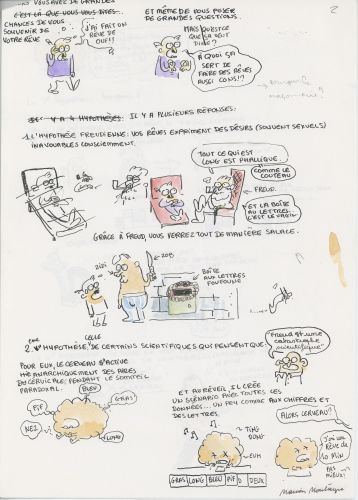 C'EST LÀ QUE VOUS VOUS
CHANCES DE VOUS
SOUVENIR DE
VOTRE RÊVE
J'AI FAIT UN
RÊVE DE
OUF!!
ET MÊME DE VOUS POSER
DE GRANDES QUESTIONS.
MAIS QU'EST CE
QUE ÇA VEUT
DIRE?
À QUOI ÇA
SERT DE
FAIRE DES RÊVES
AUSSI CONS!?
2
Y A 4 HYPOTHÈSES. IL Y A PLUSIEURS RÉPONSES:
1. L'HYPOTHÈSE FREUDIENNE: VOS RÊVES EXPRIMENT DES DÉSIRS (SOUVENT SEXUELS)
INAVOUABLES CONSCIEMMENT.
TOUT CE QUI EST
LONG EST PHALLIQUE.
COMME LE
COUTEAU
FREUD.
ET LA BOÎTE
AU LETTRES.
C'EST LE VAGIN
GRÂCE À FREUD, VOUS VERREZ TOUT DE MANIÈRE SALACE.
ZIZI
ZOB
BOÎTE
AUX LETTRES
FOUFOUNE
CELLE
2. HYPOTHÈSE DE CERTAINS SCIENTIFIQUES QUI PENSENT QUE:
"FREUD EST UNE
CATASTROPHE
SCIENTIFIQUE"
POUR EUX, LE CERVEAU S'ACTIVE
ANARCHIQUEMENT DES AIRES
PENDANT LE SOMMEIL
PARADOXAL.
BLEU
PIF
GRAS
NEZ
LONG
ET AU RÉVEIL IL CRÉE
UN SCÉNARIO AVEC TOUTES CES
DONNÉES... UN PEU COMME AUX CHIFFRES ET
DES LETTRES.
TING
DONG
EUH
GRAS LONG BLEU PIF DEUX
ALORS CERVEAU?
J'AI UN
RÊVE DE
10 MIN
PAS
MIEUX!
Marion Montaigne